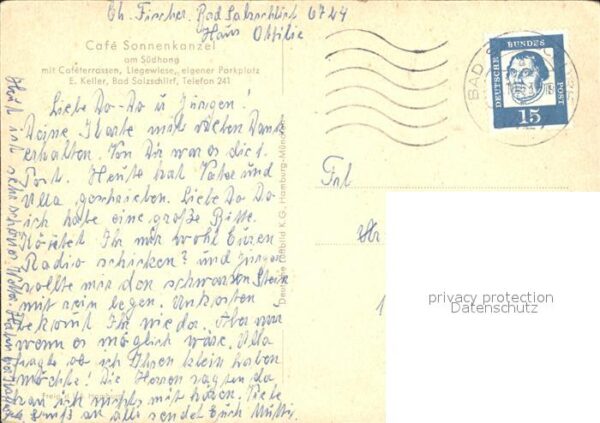 Ch. Fischer. Bad Salzschlirf 6424
Haus Ottilie
Café Sonnenkanzel
am Südhang
mit Caféterrassen, Liegewiese, eigener Parkplatz
E. Keller, Bad Salzschlirf, Telefon 241
Liebe Do-Do u Jürgen!
Deine Karte mit vielen Dank
erhalten. Von Dir war es die 1.
Post. Heute hat Vater und
Ulla geschrieben. Liebe Do Do
ich habe eine große Bitte.
Könntet Ihr mir wohl Euren
Radio schicken? und Jürgen
sollte mir den schwarzen Stein
mit rein legen. Unkosten
bekommt Ihr wieder. Aber nur
wenn es möglich wäre. Ulla
fragte ob ich Ihren klein haben
möchte! Die Herren sagten da
kan ich nichts mit hören. Viele
Gruß an alle sendet Euch Mutti.
Heut ist sehr schönes Wetter.
Deutsche Luftbild K.G. Hamburg-München
DEUTSCHE BUNDES POST
15
BAD
Frl
privacy protection
Datenschutz